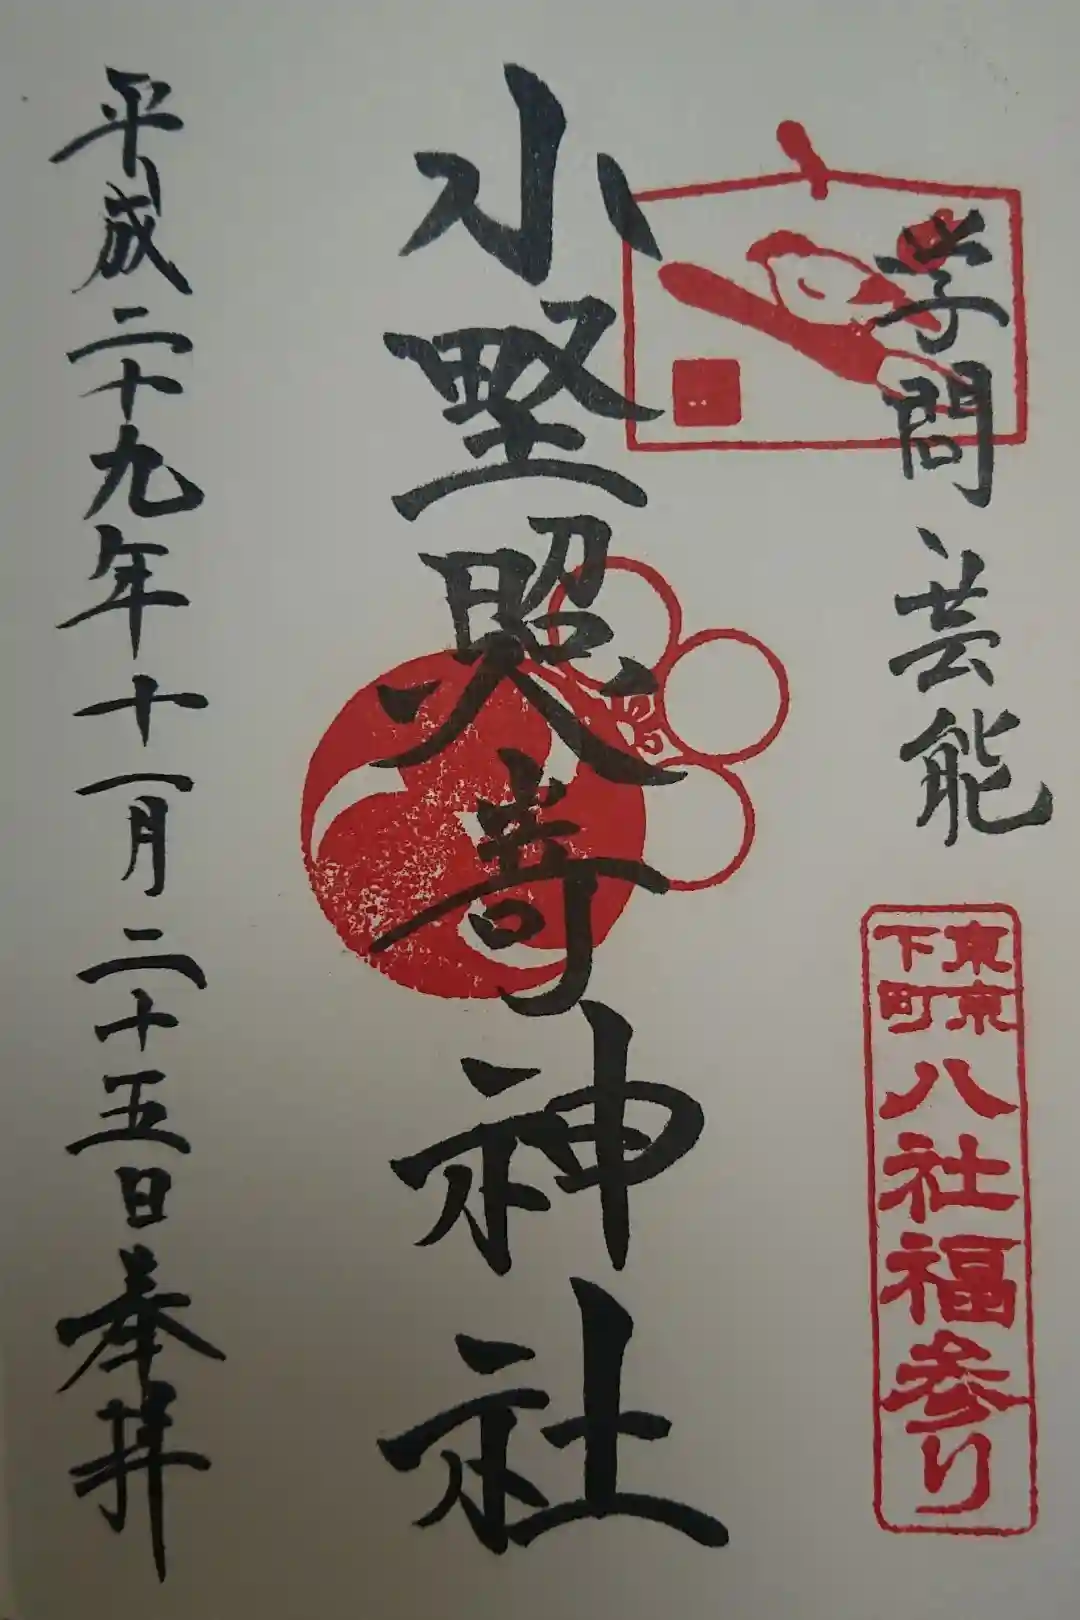 学問 芸能
東京
下町
八社福参り
小野照崎神社
平成二十九年十一月二十五日奉拝